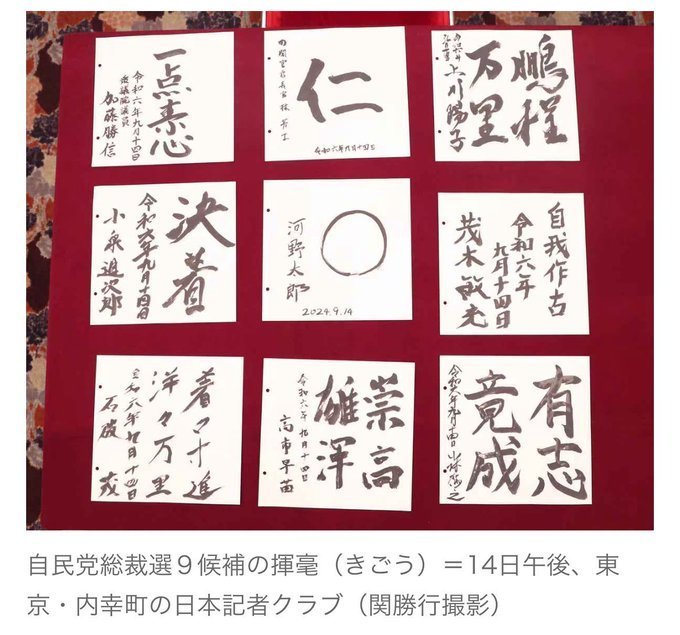 一点素心
令和六年九月十四日
衆議院議員
加藤勝信
仁
内閣官房長官 林 芳正
令和六年九月十四日
鵬程
万里
上川陽子
決着
令和六年九月十四日
小泉進次郎
河野太郎
2024.9.14
自我作古
令和六年
九月十四日
茂木敏充
着々寸進
洋々万里
令和六年九月十四日
石破 茂
崇高
雄渾
令和六年九月十四日
高市早苗
有志
竟成
令和六年九月十四日 小林鷹之
自民党総裁選９候補の揮毫（きごう）＝14日午後、東
京・内幸町の日本記者クラブ（関勝行撮影）